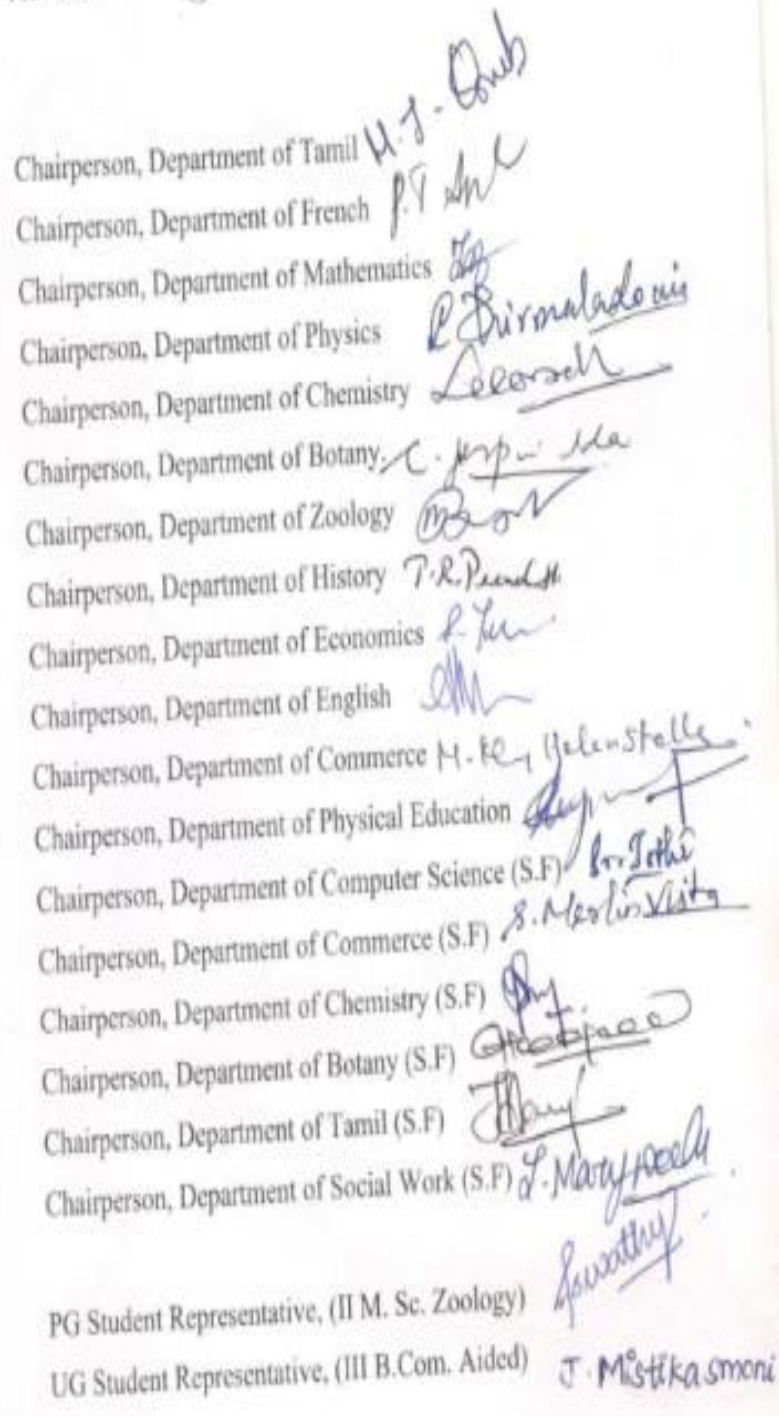 Chairperson, Department of Tamil M. J.
Chairperson, Department of French P. T
Chairperson, Department of Mathematics
Chairperson, Department of Physics
Chairperson, Department of Chemistry
Chairperson, Department of Botany.
Chairperson, Department of Zoology
Chairperson, Department of History T.R.
Chairperson, Department of Economics
Chairperson, Department of English
Chairperson, Department of Commerce M. Helen Stella
Chairperson, Department of Physical Education
Chairperson, Department of Computer Science (S.F)
Chairperson, Department of Commerce (S.F) S. Merlin Vista
Chairperson, Department of Chemistry (S.F)
Chairperson, Department of Botany (S.F)
Chairperson, Department of Tamil (S.F)
Chairperson, Department of Social Work (S.F)
PG Student Representative, (II M. Sc. Zoology)
UG Student Representative, (III B.Com. Aided) J. Mistika smoni